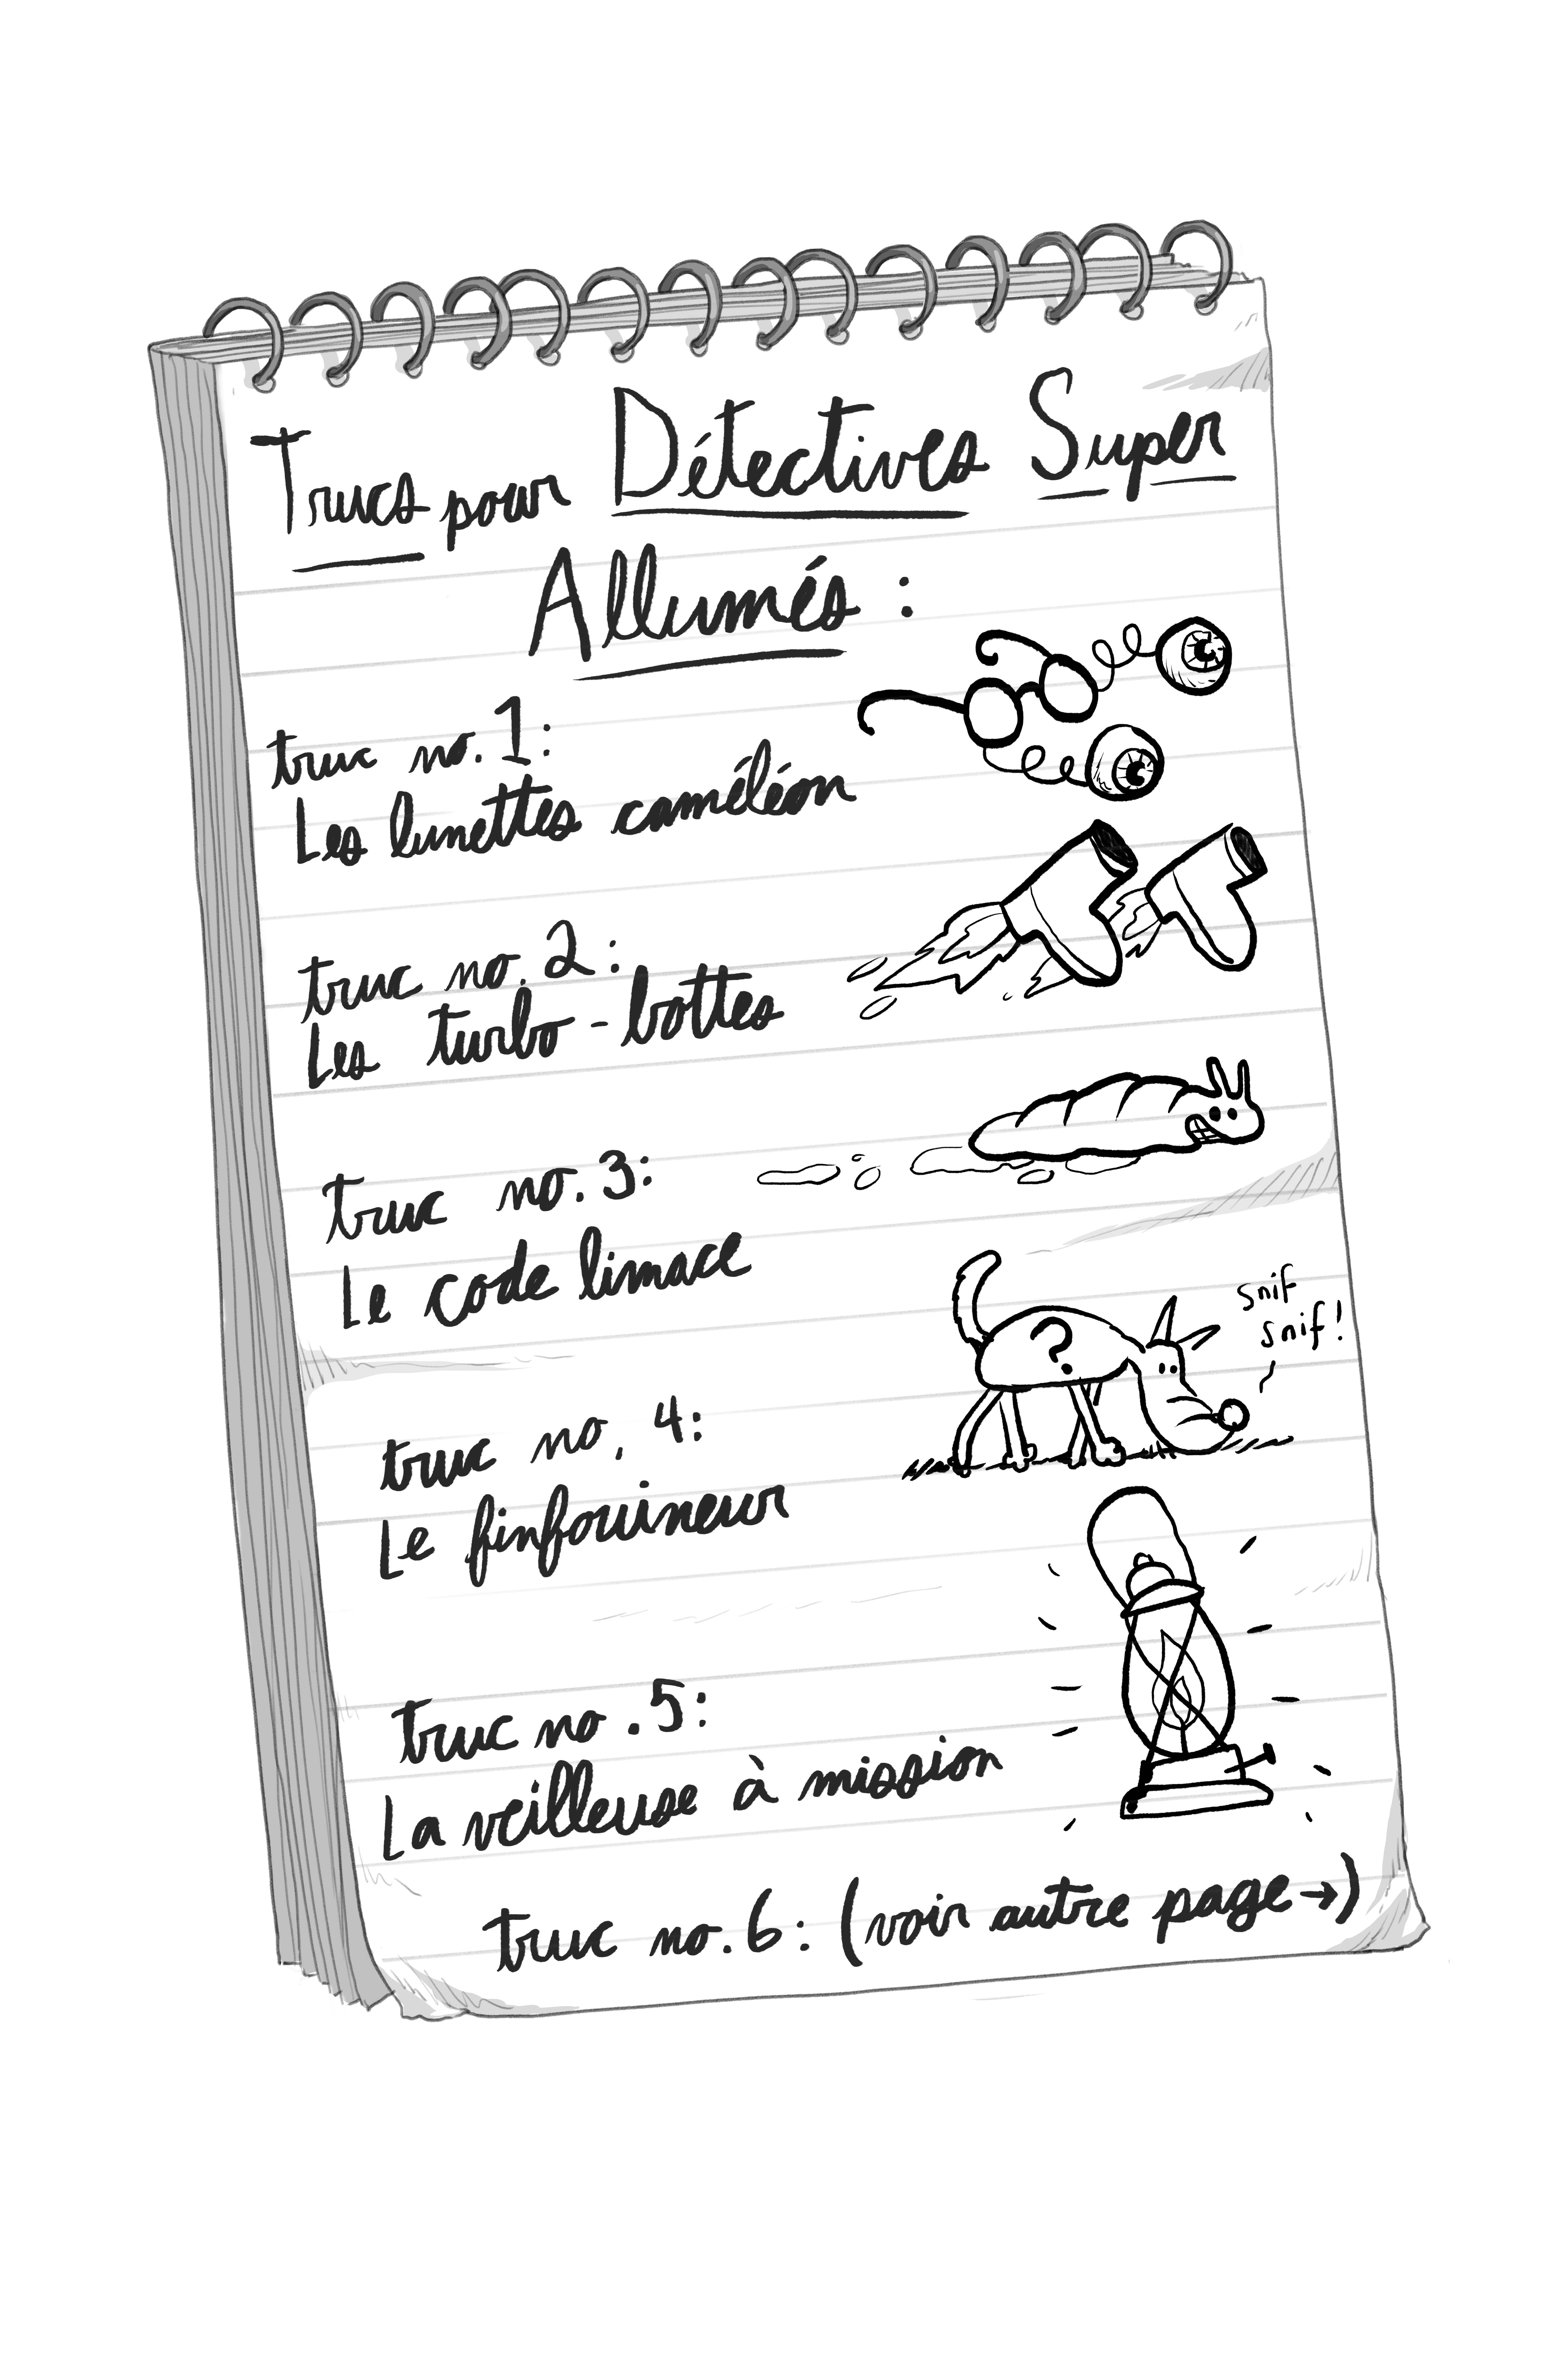 Trucs pour Détectives Super
Allumés :
truc no. 1:
Les lunettes caméléon
truc no. 2:
Les turbo-bottes
truc no. 3:
Le code limace
?
snif
snif!
truc no. 4:
Le finfouineur
truc no. 5:
La veilleuse à mission
truc no. 6: (voir autre page→)